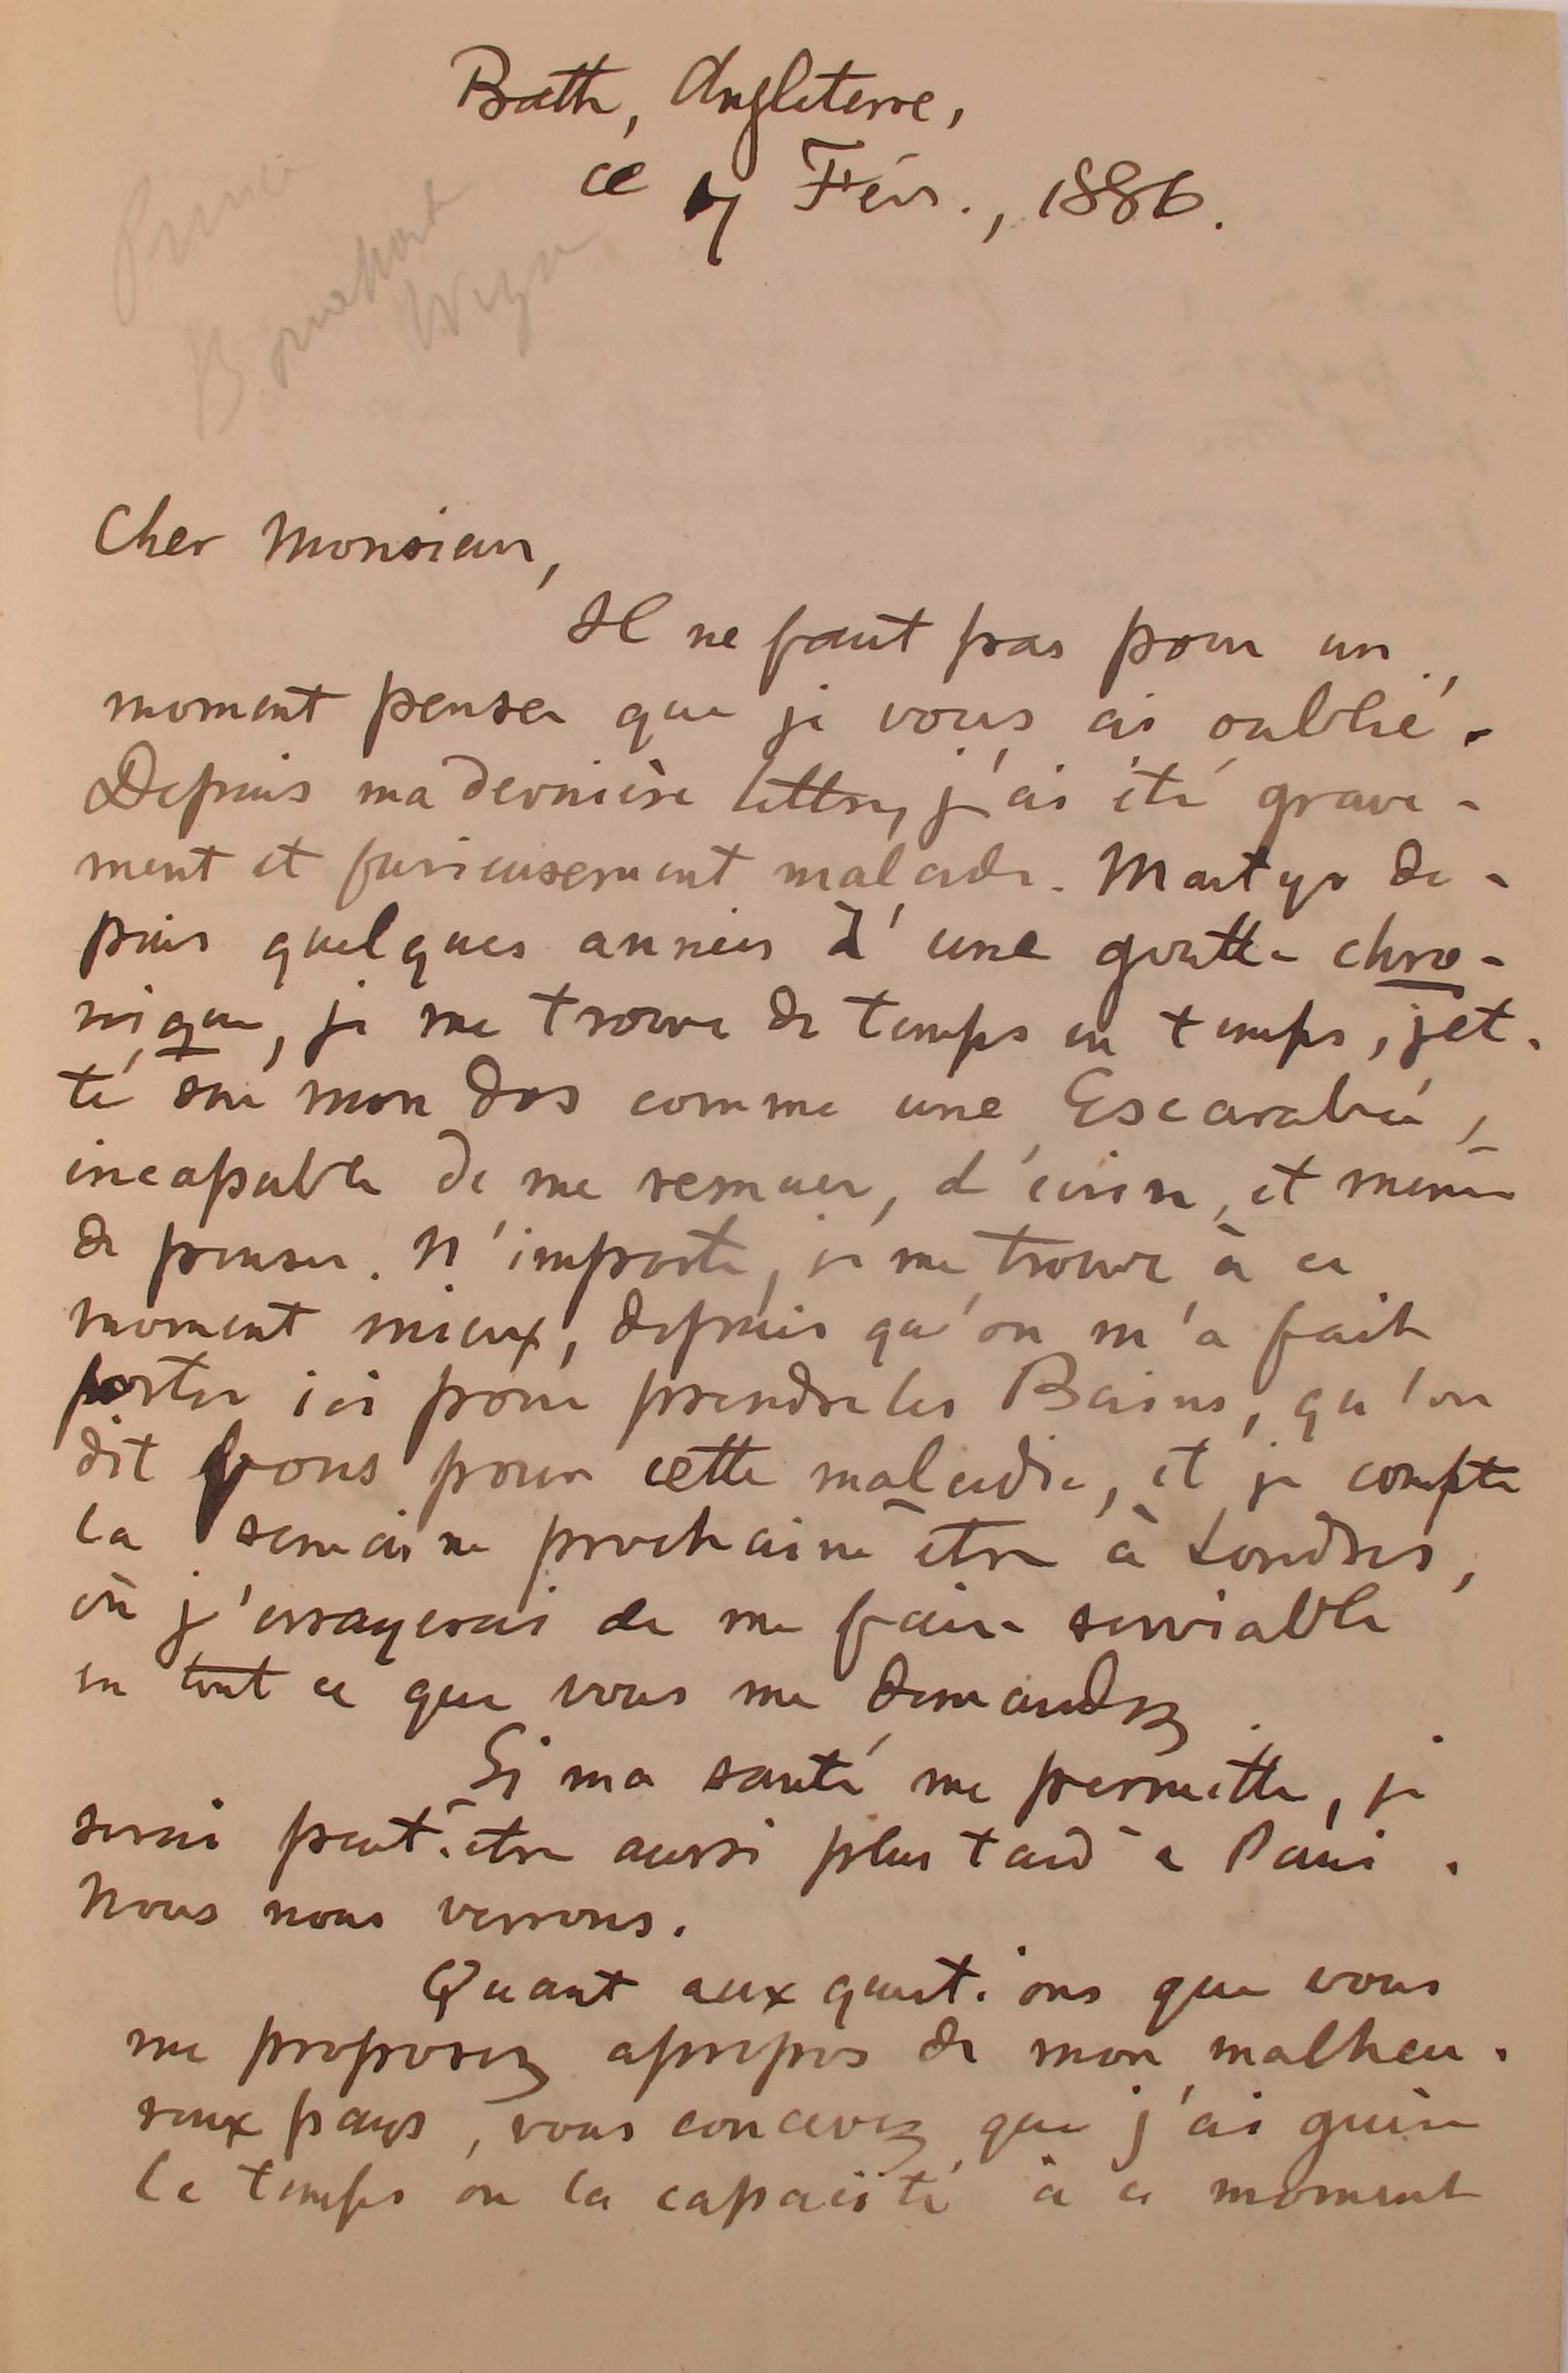 Bath, Angleterre,
ce 7 Fév., 1886.
Prince
Bonaparte
Cher Monsieur,
Il ne faut pas pour un
moment penser que je vous ai oublié.
Depuis ma dernière lettre, j'ai été grave-
ment et furieusement malade. Martyr de-
puis quelques années d'une goutte chro-
nique, je me trouve de temps en temps, jet-
té sur mon dos comme une Escarabée,
incapable de me remuer, d'écrire, et même
de penser. N'importe, je me trouve à ce
moment mieux, depuis qu'on m'a fait
porter ici pour prendre les Bains, qu'on
dit bons pour cette maladie, et je compte
la semaine prochaine être à Londres,
où j'essayerai de me faire serviable
en tout ce que vous me demandez.
Si ma santé me permette, je
serai peut-être aussi plus tard à Paris.
Nous nous verrons.
Quant aux questions que vous
me proposez apropos de mon malheu-
reux pays, vous concevez que j'ai guère
le temps ou la capacité à ce moment